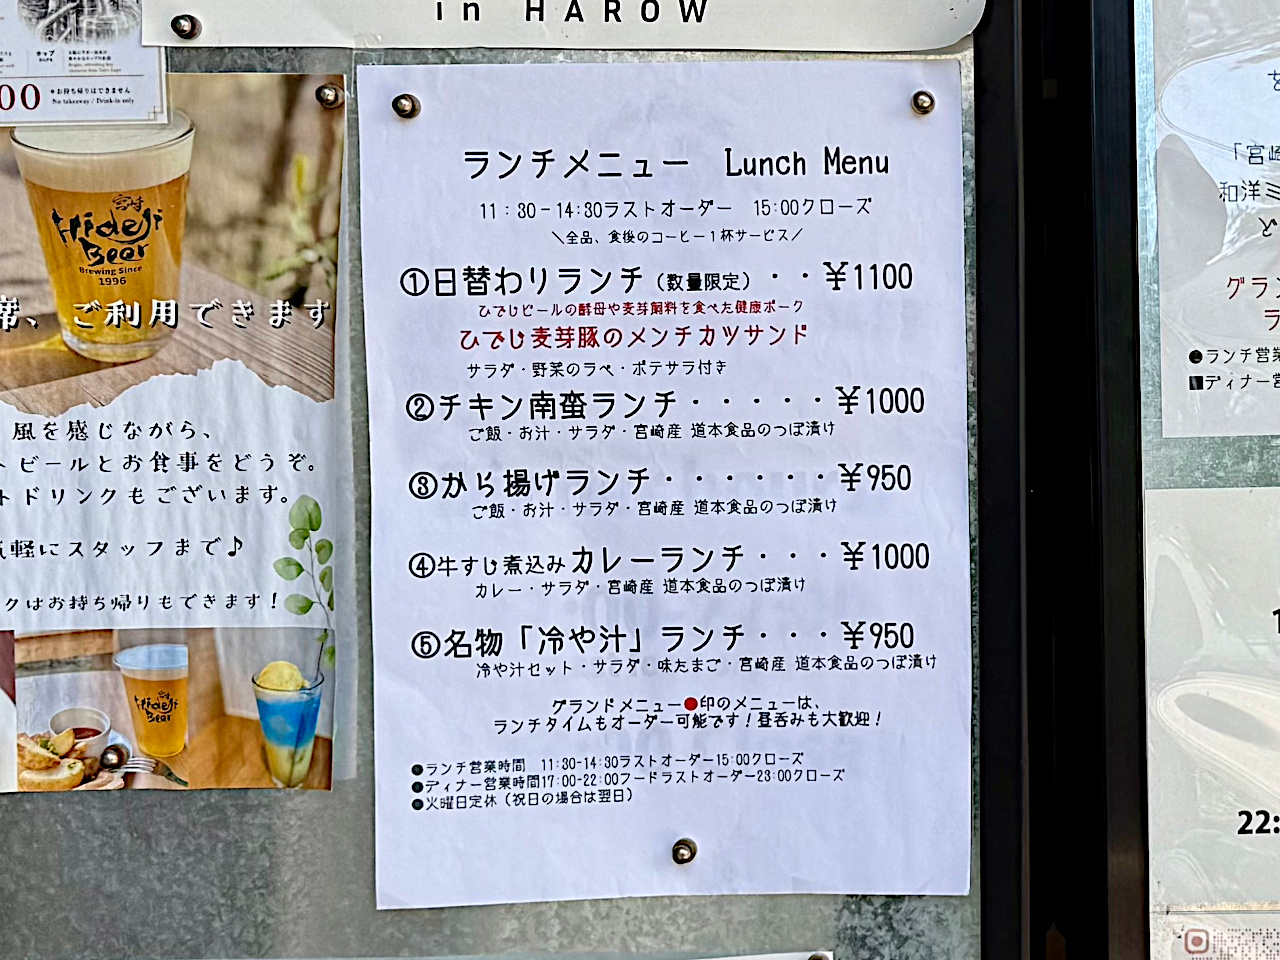 in HAROW
ホップ
00
※お持ち帰りはできません
No takeaway / Drink-in only
宮崎
Hideji
Beer
Brewing Since
1996
席、ご利用できます
風を感じながら、
トビールとお食事をどうぞ。
トドリンクもございます。
気軽にスタッフまで♪
クはお持ち帰りもできます!
Hideji
Beer
ランチメニュー Lunch Menu
11:30-14:30ラストオーダー 15:00クローズ
＼全品、食後のコーヒー1杯サービス／
①日替わりランチ(数量限定)・・¥1100
ひでじビールの酵母や麦芽飼料を食べた健康ポーク
ひでじ麦芽豚のメンチカツサンド
サラダ・野菜のラペ・ポテサラ付き
②チキン南蛮ランチ・・・・・¥1000
ご飯・お汁・サラダ・宮崎産 道本食品のつぼ漬け
③から揚げランチ・・・・・・¥950
ご飯・お汁・サラダ・宮崎産 道本食品のつぼ漬け
④牛すじ煮込みカレーランチ・・・¥1000
カレー・サラダ・宮崎産 道本食品のつぼ漬け
⑤名物「冷や汁」ランチ・・・¥950
冷や汁セット・サラダ・味たまご・宮崎産 道本食品のつぼ漬け
グランドメニュー●印のメニューは、
ランチタイムもオーダー可能です!昼呑みも大歓迎!
●ランチ営業時間 11:30-14:30ラストオーダー15:00クローズ
●ディナー営業時間17:00-22:00フードラストオーダー23:00クローズ
●火曜日定休(祝日の場合は翌日)
を
「宮崎
和洋ミ
ど
グラン
ラ
●ランチ営業
■ディナー営
1
22: